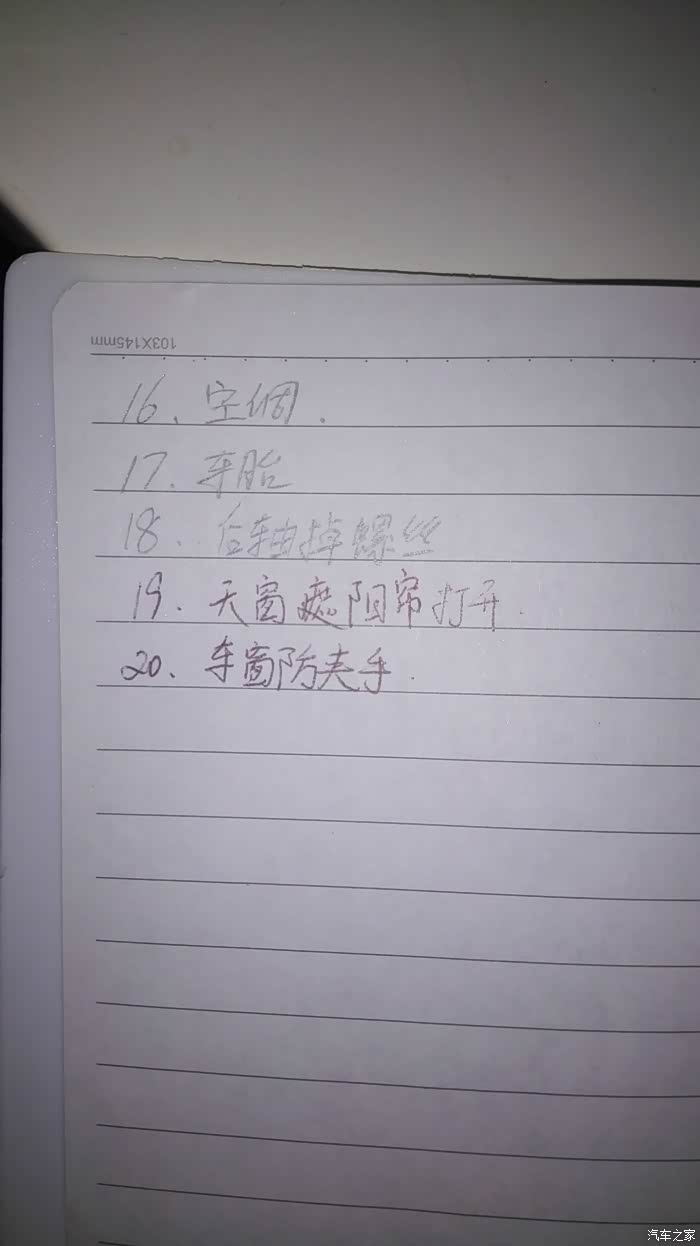 103X145mm
16、空调.
17、车胎
18、后轴掉螺丝
19、天窗遮阳帘打开.
20、车窗防夹手.
汽车之家